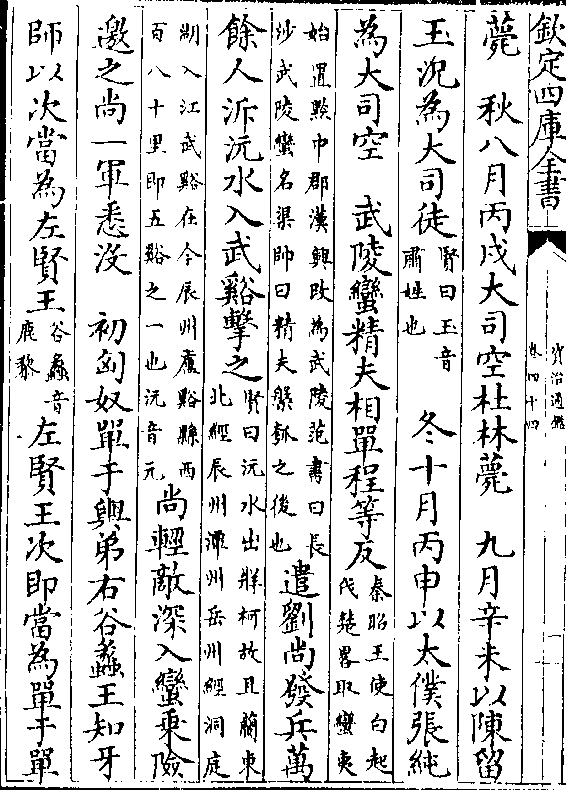 欽定四庫全書
資治通鑑
卷四十四
薨　秋八月丙戌大司空杜林薨　九月辛未以陳留
玉况為大司徒賢曰玉音肅姓也　冬十月丙申以太僕張純
為大司空　武陵蠻精夫相單程等反秦昭王使白起伐楚畧取蠻夷
始置黔中郡漢興改為武陵范書曰長沙武陵蠻名渠帥曰精夫槃瓠之後也遣劉尚發兵萬
餘人泝沅水入武谿擊之賢曰沅水出牂柯故且蘭東北經辰州潭州岳州經洞庭
湖入江武谿在今辰州盧谿縣西百八十里即五谿之一也沅音元尚輕敵深入蠻乘險
邀之尚一軍悉沒　初匈奴單于輿弟右谷蠡王知牙
師以次當為左賢王谷蠡音鹿黎左賢王次即當為單于單